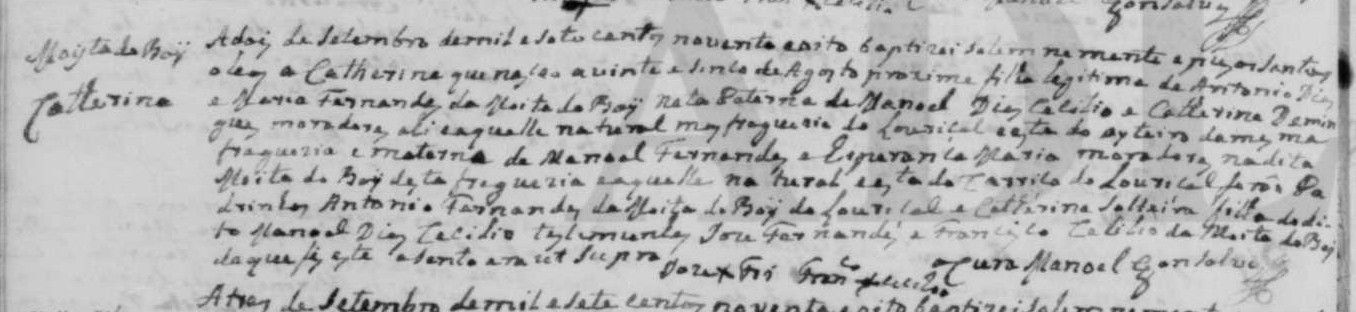 Moyta do Boy
Catterina
A doiz de Setembro de mil e sete centos noventa e oito baptizei solemnemente e puz os Santos
oleos a Catherina que nasceo a vinte e sinco de Agosto proximo filha legitima de Antonio Dias
e Maria Fernandes da Moita do Boy neta Paterna de Manoel Dias Cecilio e Catherina Domin
gues moradores ali e aquelle natural mes freguezia do Louriçal e esta do oyteiro da mesma
freguezia e materna de Manoel Fernandes e Esperança Maria moradores na dita
Moita do Boy desta freguezia e aquelle natural e esta do Carriço do Louriçal forão Pa
drinhos Antonio Fernandes da Moita do Boy do Louriçal e Catherina Solteira filha do di
to Manoel Dias Cecilio testemunhas Joze Fernandes e Francisco Cecilio da Moita do Boy
de que fiz este asento era ut supra
Joze + Frz Franco + Cecilio o Cura Manoel Gonsalves
A tres de Setembro de mil e sete centos noventa e oito baptizei